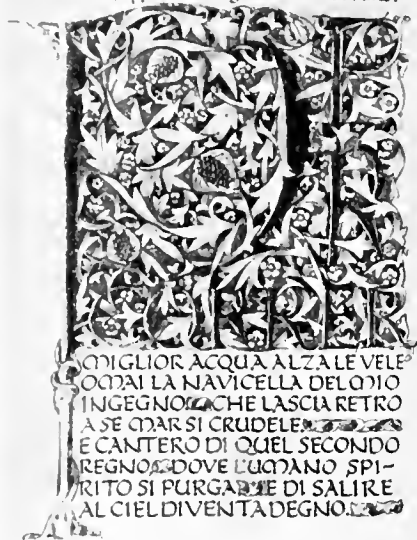 PER
MIGLIOR ACQUA ALZA LE VELE
OMAI LA NAVICELLA DEL MIO
INGEGNO CHE LASCIA RETRO
A SE MAR SI CRUDELE
E CANTERO DI QUEL SECONDO
REGNO DOVE L'UMANO SPI-
RITO SI PURGA E DI SALIRE
AL CIEL DIVENTA DEGNO.